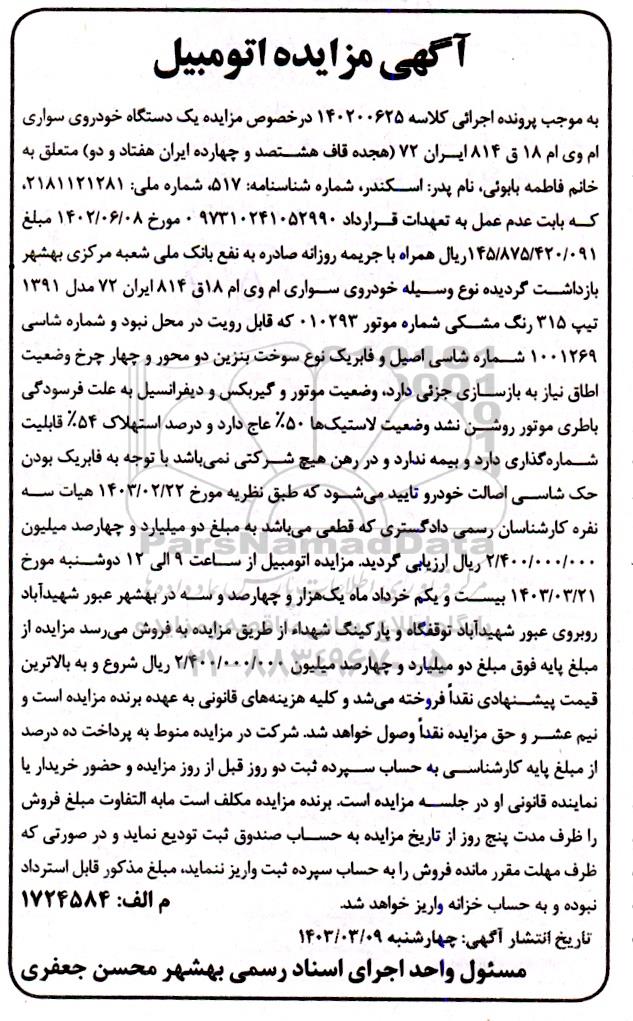 آگهی مزایده اتومبیل
به موجب پرونده اجرائی کلاسه ۱۴۰۲۰۰۶۲۵ درخصوص مزایده یک دستگاه خودروی سواری
ام وی ام ۱۸ ق ۸۱۴ ایـران ۷۲ (هجده قاف هشـتصد و چهارده ایران هفتاد و دو) متعلق به
خانم فاطمه بابوئی، نام پدر: اسـکندر، شماره شناسنامه: ۵۱۷، شماره ملی: ۲۱۸۱۱۲۱۲۸۱،
کـه بابت عدم عمل به تعهدات قـرارداد ۹۷۳۱۰۲۴۱۰۵۲۹۹۰ ۰ مورخ ۱۴۰۲/۰۶/۰۸ مبلغ
۱۴۵/۸۷۵/۴۲۰/۰۹۱ریال همراه با جریمه روزانه صادره به نفع بانک ملی شعبه مرکزی بهشهر
بازداشـت گردیده نوع وسـیله خودروی سـواری ام وی ام ۱۸ق ۸۱۴ ایران ۷۲ مدل ۱۳۹۱
تیپ ۳۱۵ رنگ مشـکی شماره موتور ۰۱۰۲۹۳ که قابل رویت در محل نبود و شماره شاسی
۱۰۰۱۲۶۹ شـماره شاسی اصیل و فابریک نوع سوخت بنزین دو محور و چهار چرخ وضعیت
اطاق نیاز به بازسـازی جزئی دارد، وضعیت موتور و گیربکس و دیفرانسیل به علت فرسودگی
باطری موتور روشـن نشد وضعیت لاستیک‌ها ۵۰٪ عاج دارد و درصد استهلاک ۵۴٪ قابلیت
شـماره‌گذاری دارد و بیمه ندارد و در رهن هیچ شـرکتی نمی‌باشد با توجه به فابریک بودن
حک شاسـی اصالت خودرو تایید می‌شـود که طبق نظریه مورخ ۱۴۰۳/۰۲/۲۲ هیات سـه
نفره کارشناسان رسمی دادگستری که قطعی می‌باشد به مبلغ دو میلیارد و چهارصد میلیون
۲/۴۰۰/۰۰۰/۰۰۰ ریال ارزیابی گردید. مزایده اتومبیل از سـاعت ۹ الی ۱۲ دوشـنبه مورخ
۱۴۰۳/۰۳/۲۱ بیسـت و یکم خرداد ماه یک‌هزار و چهارصد و سـه در بهشهر عبور شهیدآباد
روبروی عبور شهیدآباد توقفگاه و پارکینگ شهداء از طریق مزایده به فروش می‌رسد مزایده از
مبلغ پایه فوق مبلغ دو میلیارد و چهارصد میلیون ۲/۴۰۰/۰۰۰/۰۰۰ ریال شروع و به بالاترین
قیمت پیشـنهادی نقداً فروخته می‌شد و کلیه هزینه‌های قانونی به عهده برنده مزایده است و
نیم عشـر و حق مزایده نقداً وصول خواهد شد. شرکت در مزایده منوط به پرداخت ده درصد
از مبلغ پایه کارشناسـی به حساب سـپرده ثبت دو روز قبل از روز مزایده و حضور خریدار یا
نماینده قانونی او در جلسـه مزایده است. برنده مزایده مکلف است مابه التفاوت مبلغ فروش
را ظرف مدت پنج روز از تاریخ مزایده به حسـاب صندوق ثبت تودیع نماید و در صورتی که
ظرف مهلت مقرر مانده فروش را به حساب سپرده ثبت واریز ننماید، مبلغ مذکور قابل استرداد
نبوده و به حساب خزانه واریز خواهد شد. م الف: ۱۷۲۴۵۸۴
تاریخ انتشار آگهی: چهارشنبه ۱۴۰۳/۰۳/۰۹
مسئول واحد اجرای اسناد رسمی بهشهر محسن جعفری
ParsNamadData